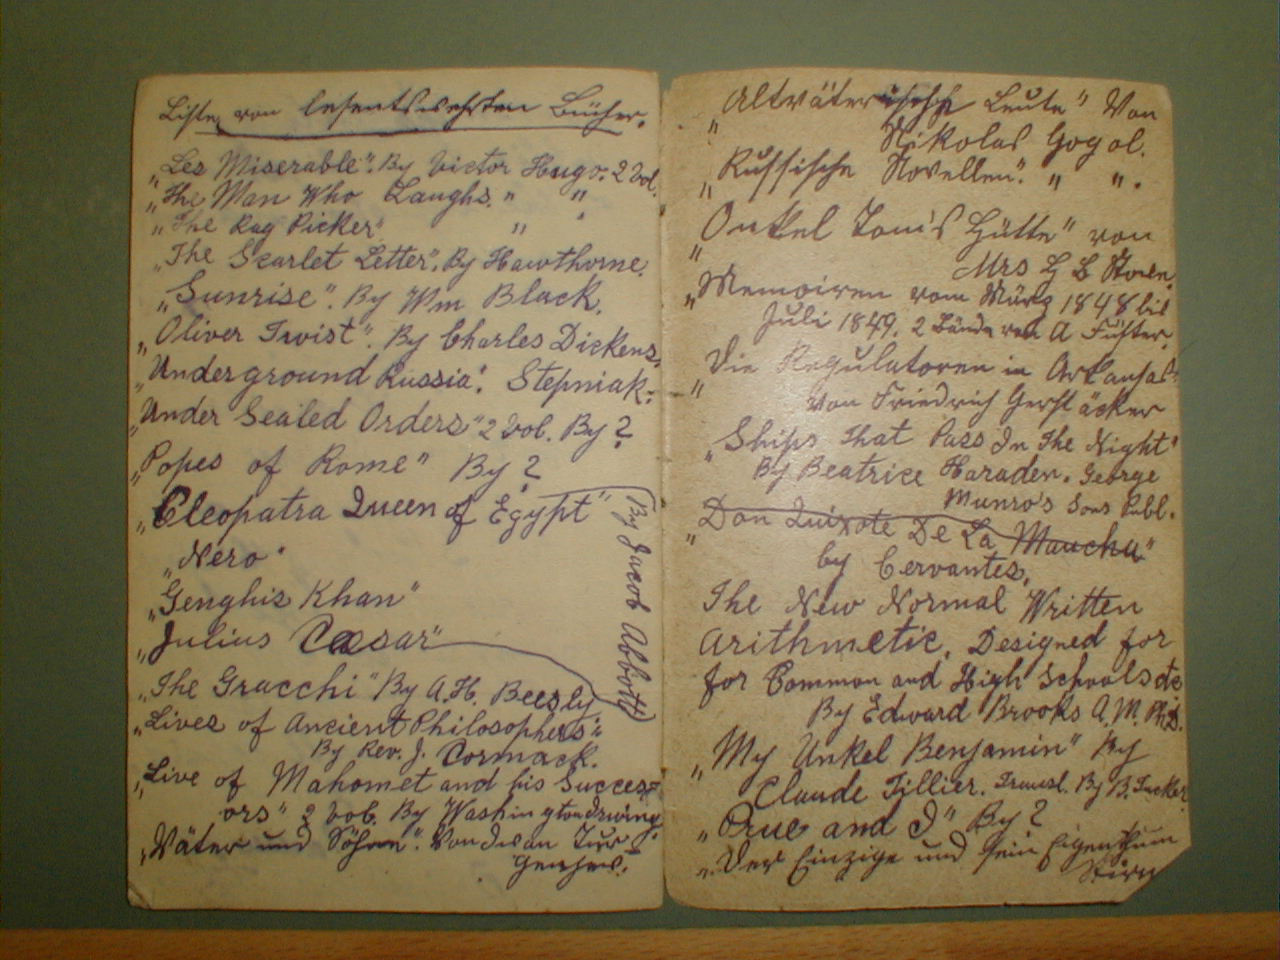 Liste von lesentswehrten Bücher.
„Les Miserable". By Victor Hugo. 2 Vol.
„The Man Who Laughs. " "
„The Rag Picker" " "
„The Scarlet Letter". By Hawthorne.
„Sunrise". By Wm Black.
„Oliver Twist". By Charles Dickens.
„Underground Russia". Stepniak.
„Under Sealed Orders" 2 Vol. By ?
„Popes of Rome" By ?
„Cleopatra Queen of Egypt"
„Nero"
„Genghis Khan"
„Julius Caesar"
(By Jacob Abbott)
„The Gracchi" By A.H. Beesly
„Lives of Ancient Philosophers"
By Rev. J. Cormack.
„Live of Mahomet and his Success=
ors" 2 vol. By Washington Irving.
„Väter und Söhne". Von Ivan Tur
genjew.
„Altväterische Leute" Von
Nikolas Gogol.
„Russische Novellen". " ".
„Onkel Tom's Hütte" von
Mrs H B Stowe.
„Memoiren vom März 1848 bis
Juli 1849. 2 Bände von A Füster.
„Die Regulatoren in Arkansas"
Von Friedrich Gerstäcker
„Ships That Pass In The Night"
By Beatrice Haraden. George
Munro's Sons Publ.
„Don Quixote De La Mancha"
by Cervantes.
The New Normal Written
Arithmetic, Designed for
for Common and High Schools etc
By Edward Brooks A.M. Ph.D.
„My Unkel Benjamin" By
Claude Tillier. Transl. By B. Tucker
„Prue and I" By ?
„Der Einzige und sein Eigenthum
Stirn